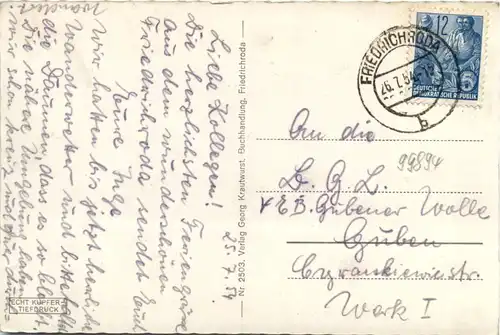 Liebe Kollegen! 25.7.54
Die herzlichsten Feriengrüße
aus dem wunderschönen
Friedrichroda sendet Euch
Eure Inge
Wir hatten bis jetzt herrliches
Wanderwetter und bitte haltet
die Daumen, daß es so bleibt.
Die nähere Umgebung haben
wir schon kreuz und quer durch-
wandert.
ECHT KUPFER-
TIEFDRUCK
Nr. 2503. Verlag Georg Krautwurst, Buchhandlung, Friedrichroda
FRIEDRICHRODA
26.7.54
b
12
DEUTSCHE
DEMOKRATISCHE REPUBLIK
5
An die
99894
B. G. L.
VEB. Gubener Wolle
Guben
Cyrankiewiczstr.
Werk I